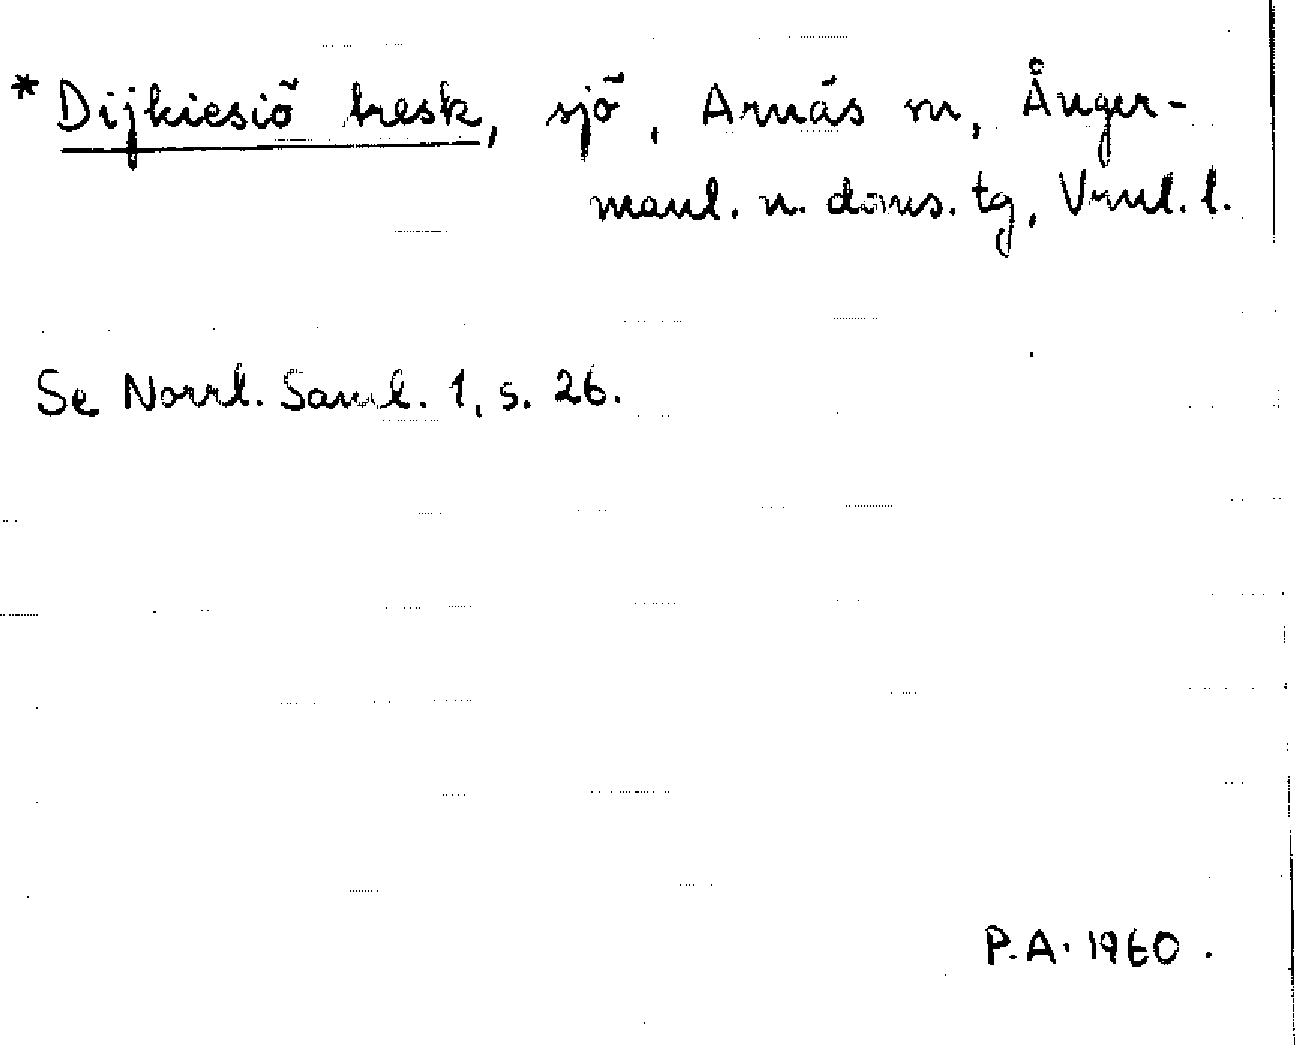 * Dijkiesiö tresk, sjö, Arnäs sn, Ånger-
manl. n. doms. tg, Vrnl. l.
Se Norrl. Saml. 1, s. 26.
P.A. 1960.